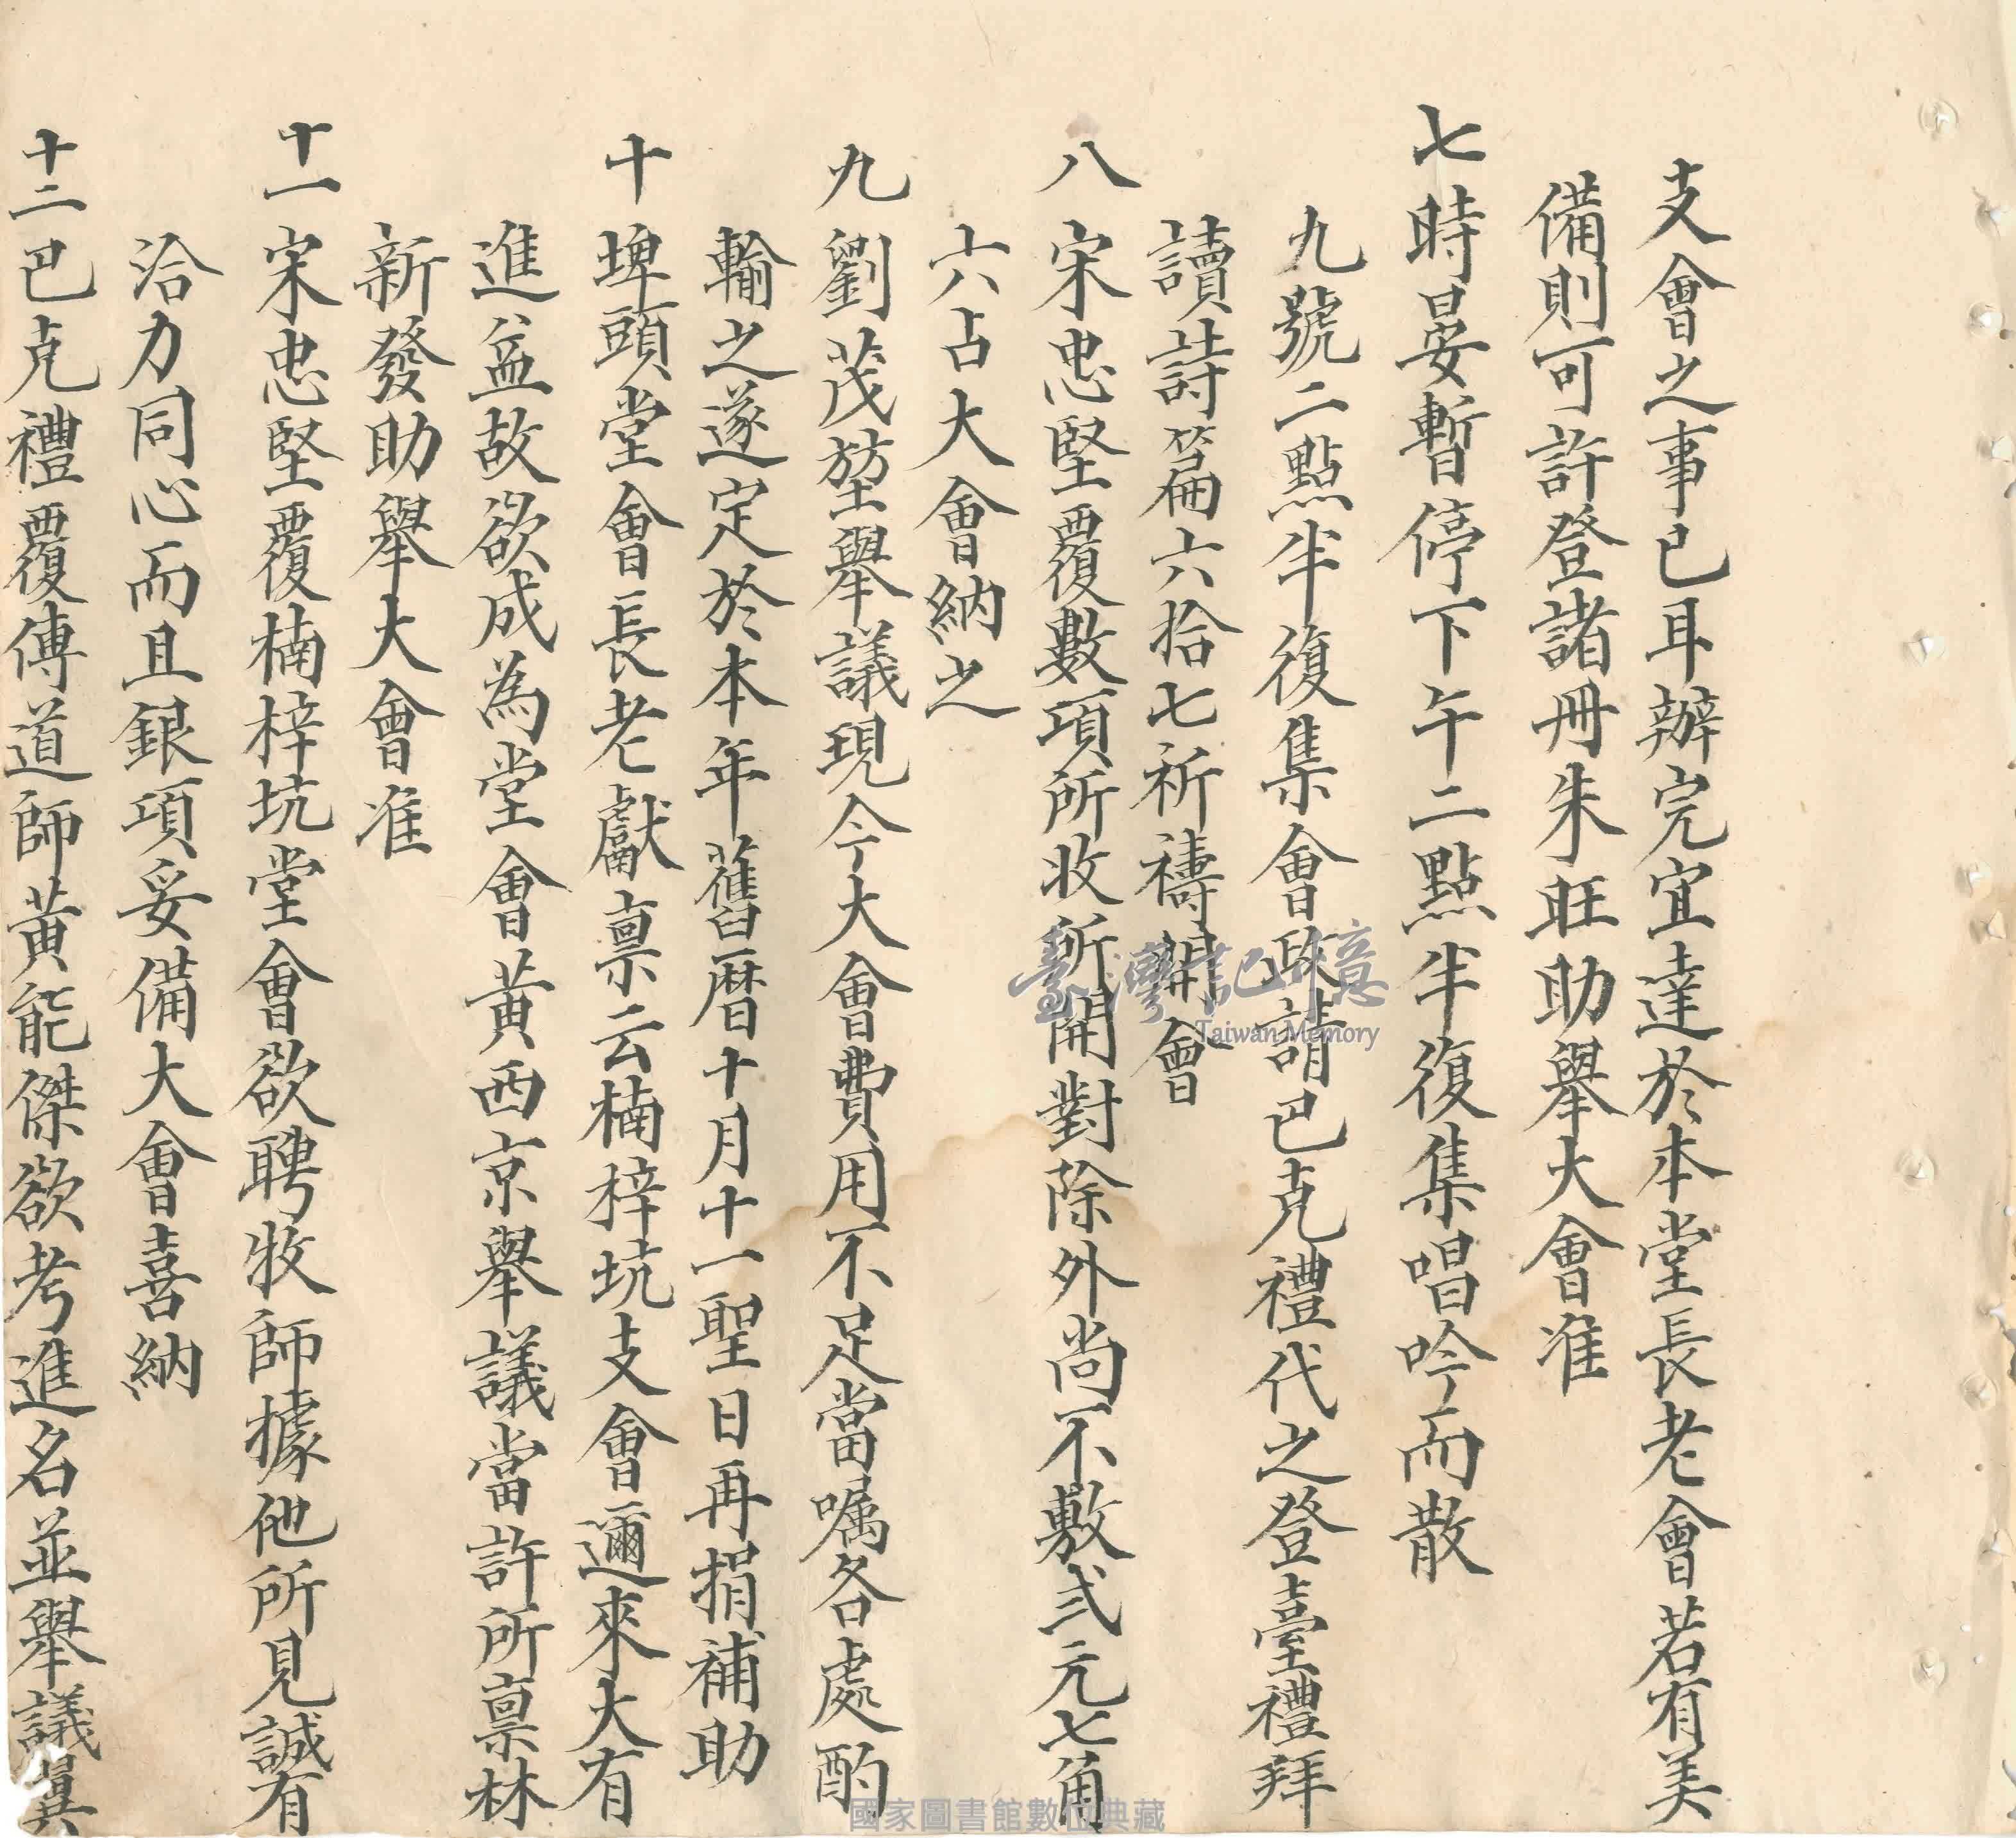 支會之事已耳辦完宜達於本堂長老會若有美
備則可許登諸冊朱旺助舉大會准
七時晏暫停下午二點半復集唱吟而散
九號二點半復集會政請巴克禮代之登臺禮拜
讀詩篇六拾七祈禱開會
八 宋忠堅覆數項所收所開對除外尚不敷弍元七角
六占大會納之
九 劉茂堃舉議現今大會費用不足當嘱各處酌
輸之遂定於本年舊曆十月十一聖日再捐補助
十 埤頭堂會長老獻禀云楠梓坑支會邇來大有
進益故欲成為堂會黃西京舉議當許所禀林
新發助舉大會准
十一 宋忠堅覆楠梓坑堂會欲聘牧師據他所見誠有
洽力同心而且銀項妥備大會喜納
十二 巴克禮覆傳道師黃能傑欲考進名並舉議
臺灣記憶
Taiwan Memory
國家圖書館數位典藏